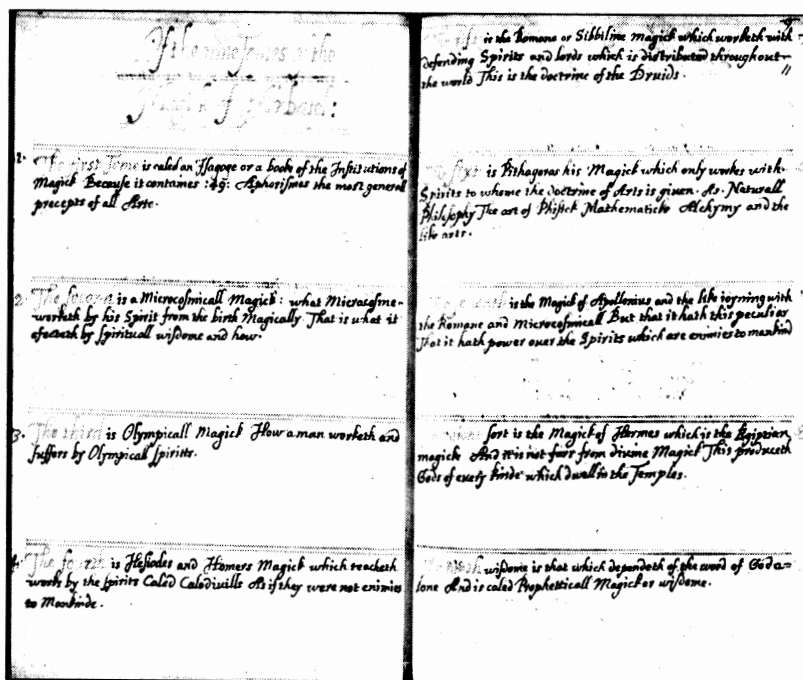 Of the nine Tomes of the
Magick of Arbatel:
1. The first Tome is caled an Isagoge or a booke of the Institutions of
Magick Because it containes :49: Aphorismes the most generall
precepts of all Arte.
2. The second is a Microcosmicall Magick: what Microcosme-
worketh by his Spirit from the birth Magically. That is what it
efecteth by spirituall wisdome and how.
3. The third is Olympicall Magick How a man worketh and
suffers by Olympicall spiritts.
4. The fourth is Hesiodes and Homers Magick which teacheth
works by the spirits Caled Calodivills As if they were not enimies
to Mankinde.
The fift is the Romane or Sibbiline magick which worketh with
defending Spirits and lords which is distributed throughout-
the world This is the doctrine of the Druids. //
sixt is Pithagoras his Magick which only workes with-
Spirits to whome the doctrine of Arts is given. As. Naturall
Philosophy The art of Phisick Mathematicks Alchymy and the
like arts.
is the Magick of Apollonius and the like ioyning with
the Romane and Microcosmicall But that it hath this peculiar
That it hath power over the Spirits which are enimies to mankind
sort is the Magick of Hermes which is the Egiptian
magick And it is not farr from divine Magick This produceth
Gods of every kinde which dwell in the Temples.
wisdome is that which dependeth of the word of God a=
lone And is caled Propheticall Magick or wisdome.